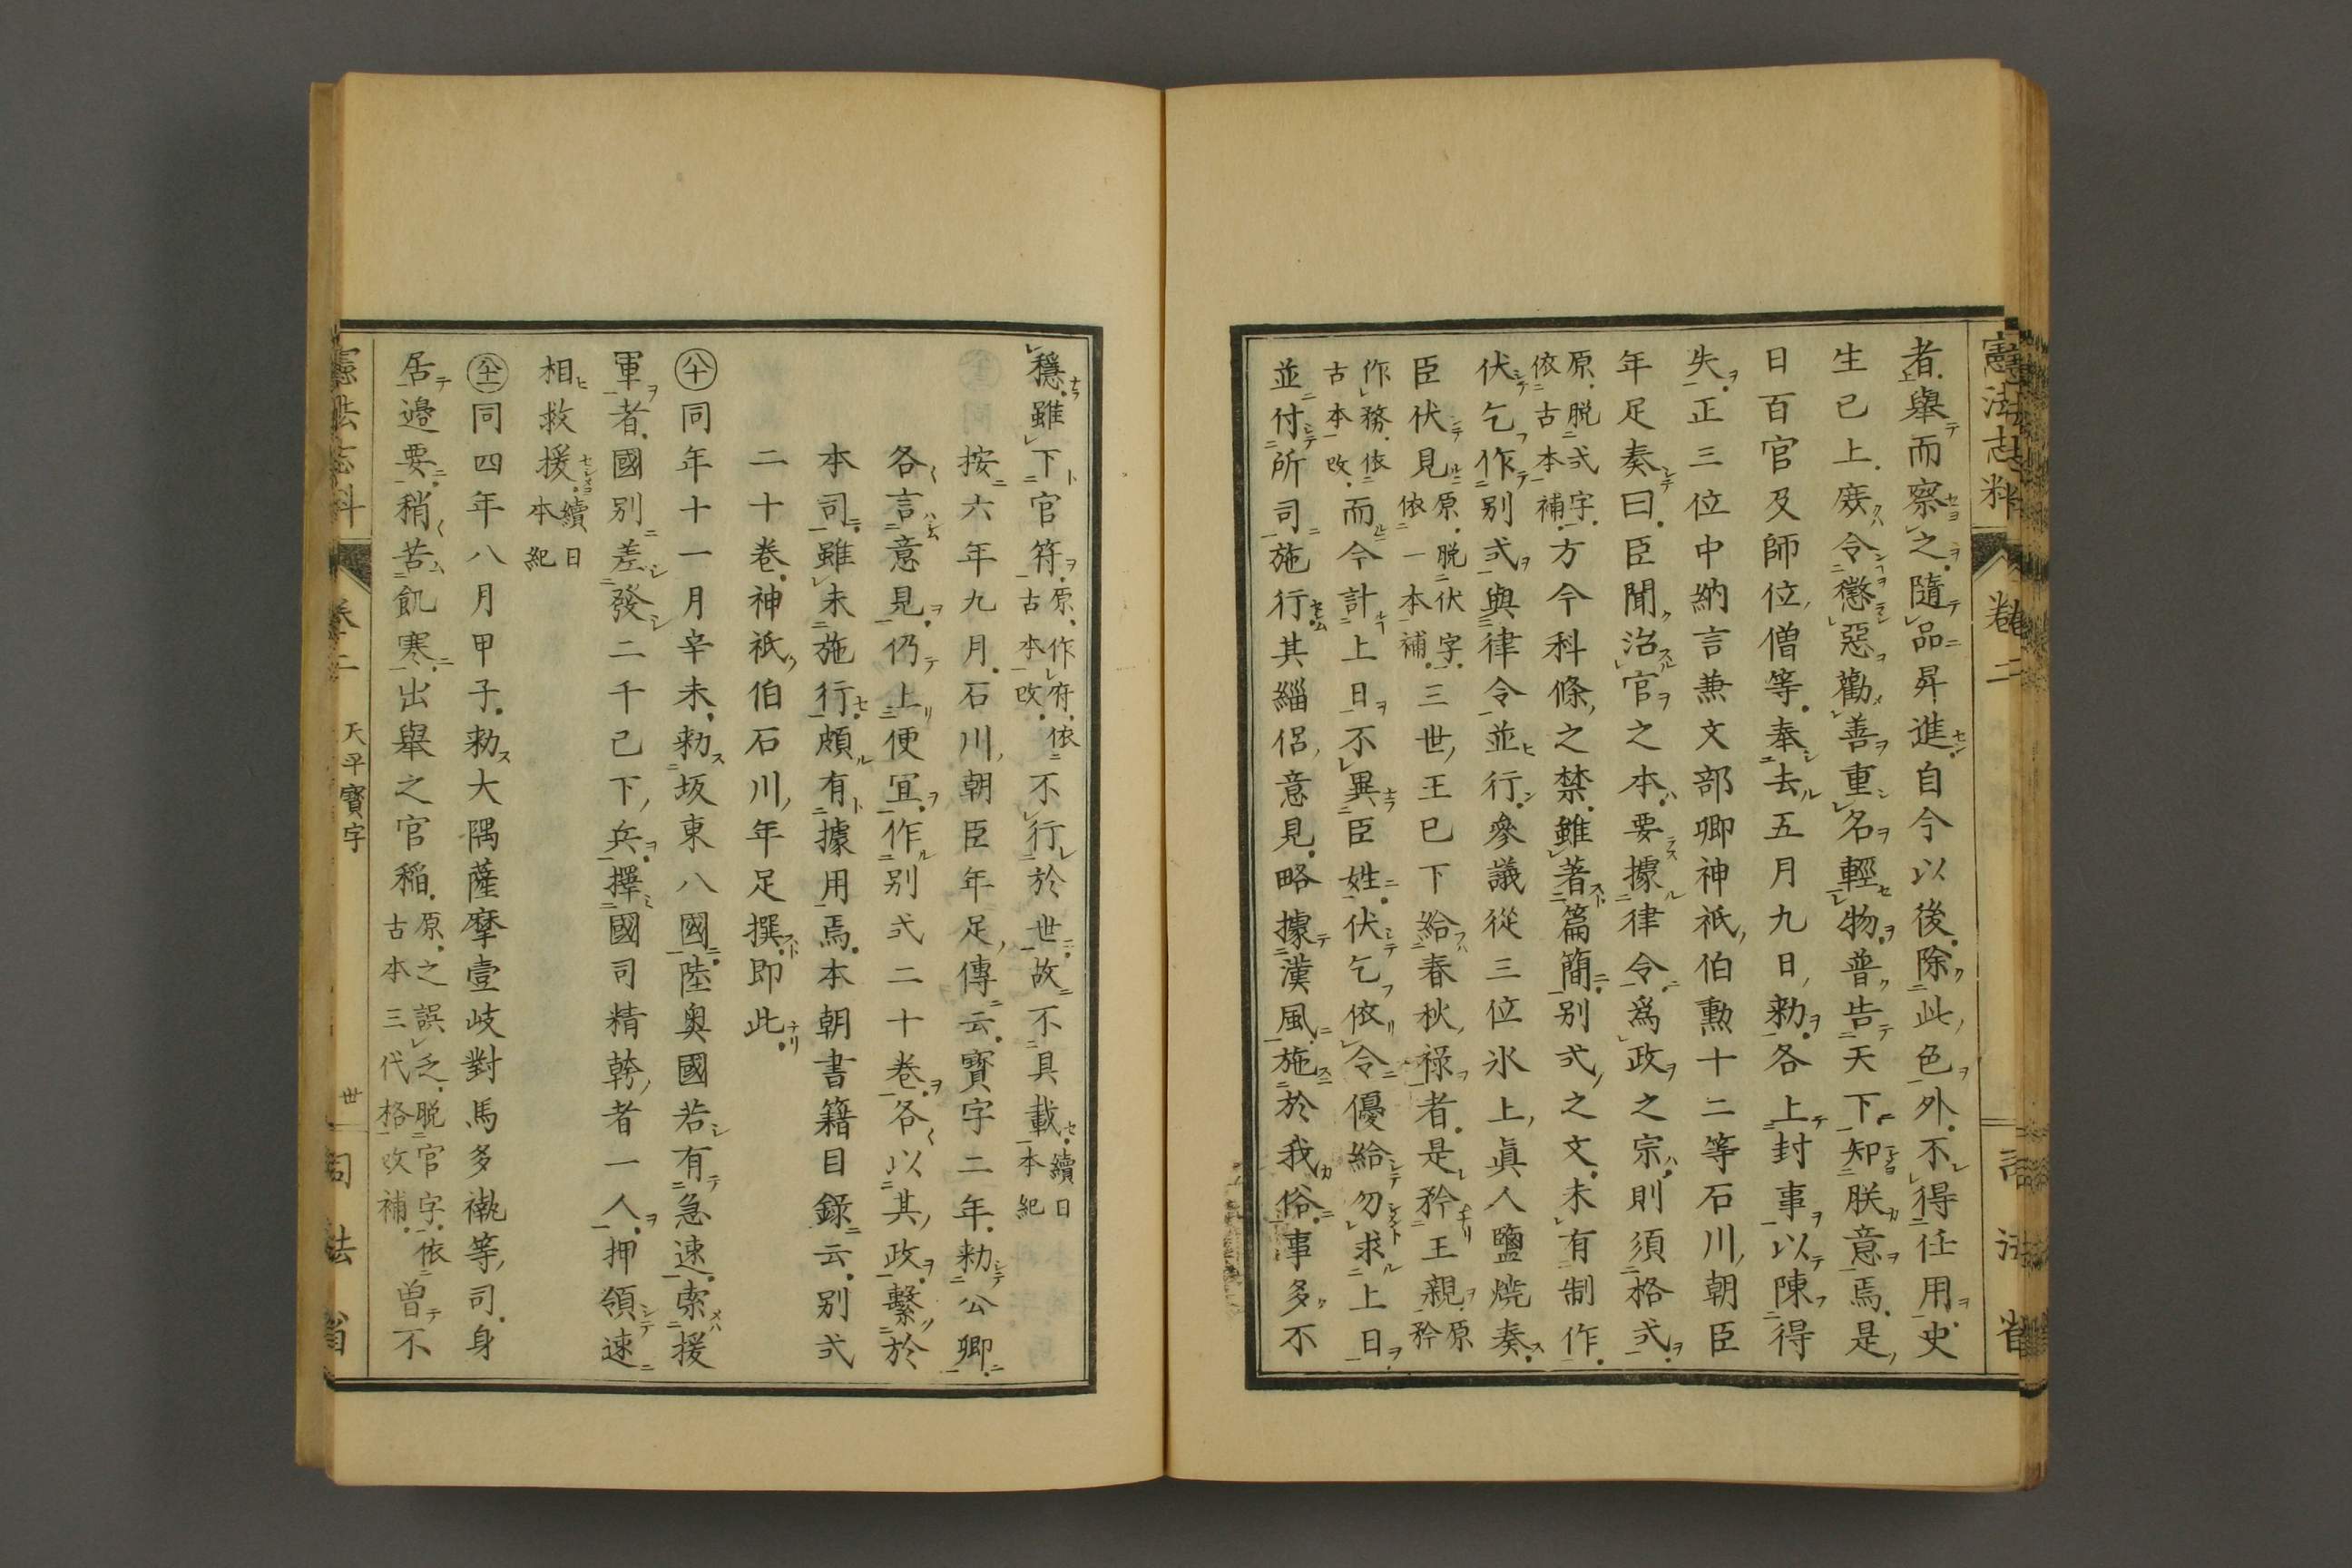 憲法志料 卷二 司法省
者舉而察之隨品昇進自今以後除此色外不得任用史
生已上庶令懲惡勸善重名輕物普告天下知朕意焉是
日百官及師位僧等奉去五月九日勅各上封事以陳得
失正三位中納言兼文部卿神祇伯勳十二等石川朝臣
年足奏曰臣聞治官之本要據律令爲政之宗則須格式
原脱式字依古本補方今科條之禁雖著篇簡別式之文未有制作
伏乞作別式與律令並行參議從三位氷上眞人鹽燒奏
臣伏見原脱伏字依一本補三世王已下給春秋祿者是矜王親原矜
作務依古本改而今計上日不異臣姓伏乞依令優給勿求上日
並付所司施行其緇侶意見略據漢風施於我俗事多不
穩雖下官符原作府依古本改不行於世故不具載續日本紀
按六年九月石川朝臣年足傳云寶字二年勅公卿
各言意見仍上便宜作別式二十卷各以其政繫於
本司雖未施行頗有據用焉本朝書籍目錄云別式
二十卷神祇伯石川年足撰即此
八十同年十一月辛未勅坂東八國陸奥國若有急速索援
軍者國別差發二千已下兵擇國司精幹者一人押領速
相救援續日本紀
八十一同四年八月甲子勅大隅薩摩壹岐對馬多褹等司身
居邉要稍苦飢寒出舉之官稲原之誤乏脱官字依古本三代格改補曽不
憲法志料 卷二 天平寳字 丗 司法省